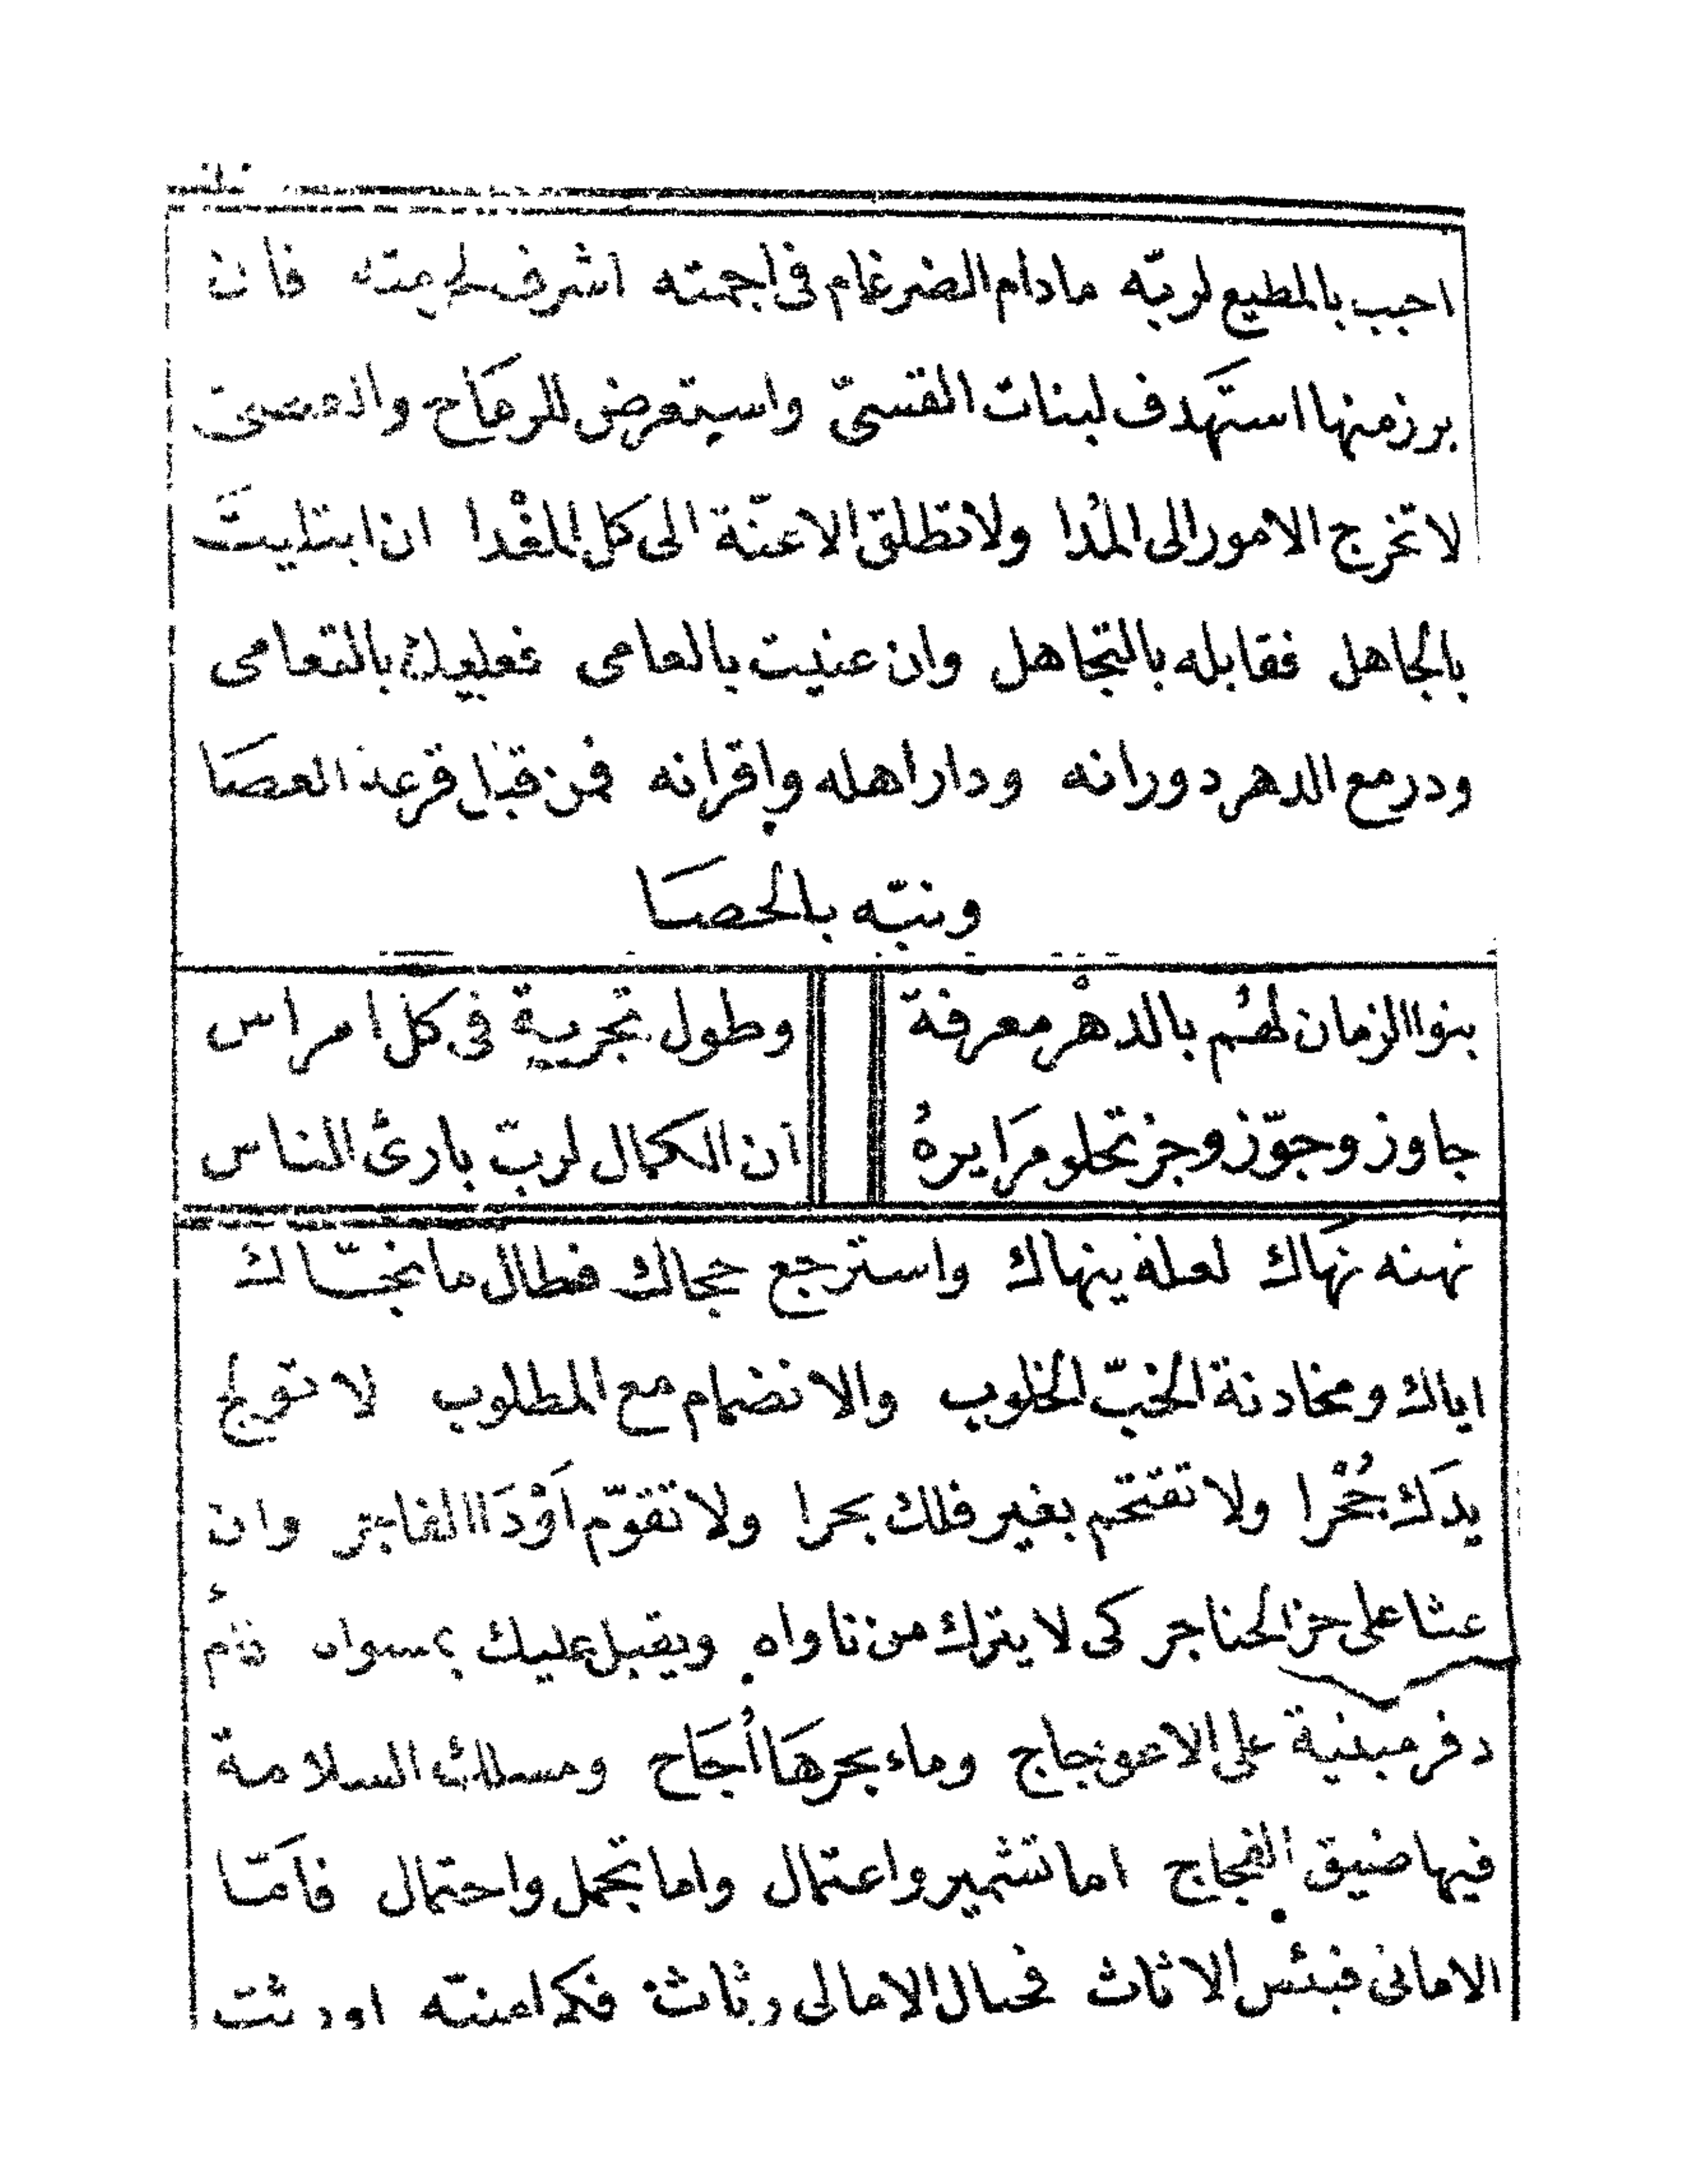 احبب بالمطيع لربّه مادام الضرغام فى اجمته اشرف لحرمته فان
برز منها استهدف لبنات القسىّ واستعرض للرماح والعصىّ
لا تخرج الامور الى المُدا ولا تطلق الاعنّة الى كل المغْدا ان ابتليتَ
بالجاهل فقابله بالتجاهل وان عنيت بالعامى فعليك بالتعامى
ودر مع الدهر دورانه ودار اهله واقرانه فمن قبل قرعت العصَا
ونبّه بالحصَا
بنوا الزمان لهُم بالدهْر معرفة وطول تجربة فى كل امراس
جاوز وجوّز وجز تحلو مرَايرهُ ان الكمال لربّ بارئ الناس
نهنه نهَاك لعله ينهاك واسترجع حجاك فطال ما نجّاك
اياك ومخادنة الخبّ الخلوب والانضمام مع المطلوب لا تولج
يدَك جُحْرا ولا تقتحم بغير فلك بحرا ولا تقوّم اَوْدَا الفاجر وان
عثا على حز الحناجر كى لا يترك من ناواه ويقبل عليك بسواه فأم
دفر مبنية على الاعوجاج وماء بحرهَا اُجَاج ومسلك السلامة
فيها ضيق الفجاج اما تشمير واعتمال واما تجمل واحتمال فاَمّا
الامانى فبئس الاثاث فحبال الامالى رثاث فكم امنيّه اورثت